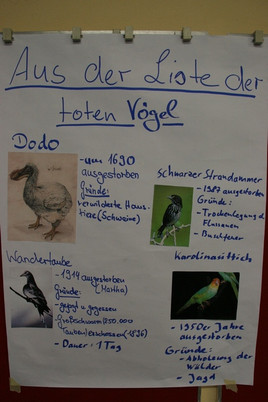 Aus der Liste der
toten Vögel
Dodo
-um 1690
ausgestorben
Gründe:
verwilderte Haus-
tiere (Schweine)
Schwarzer Strandammer
-1987 ausgestorben
Gründe:
-Trockenlegung d.
Flussauen
-Buschfeuer
Wandertaube
-1914 ausgestorben
(Martha)
Gründe:
-gejagt u gegessen
-Großschwarm (250.000
Tauben) erschossen (1896)
-Dauer: 1 Tag
Karolinasittich
-1950er Jahre
ausgestorben
Gründe:
-Abholzung der
Wälder
-Jagd